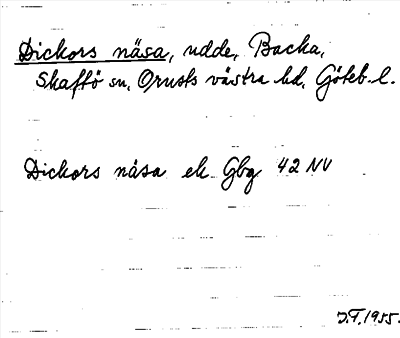 Dickors näsa, udde, Backa,
Skaftö sn, Orusts västra hd, Göteb. l.
Dickors näsa ek Gbg 42 NV
J.F. 1955.